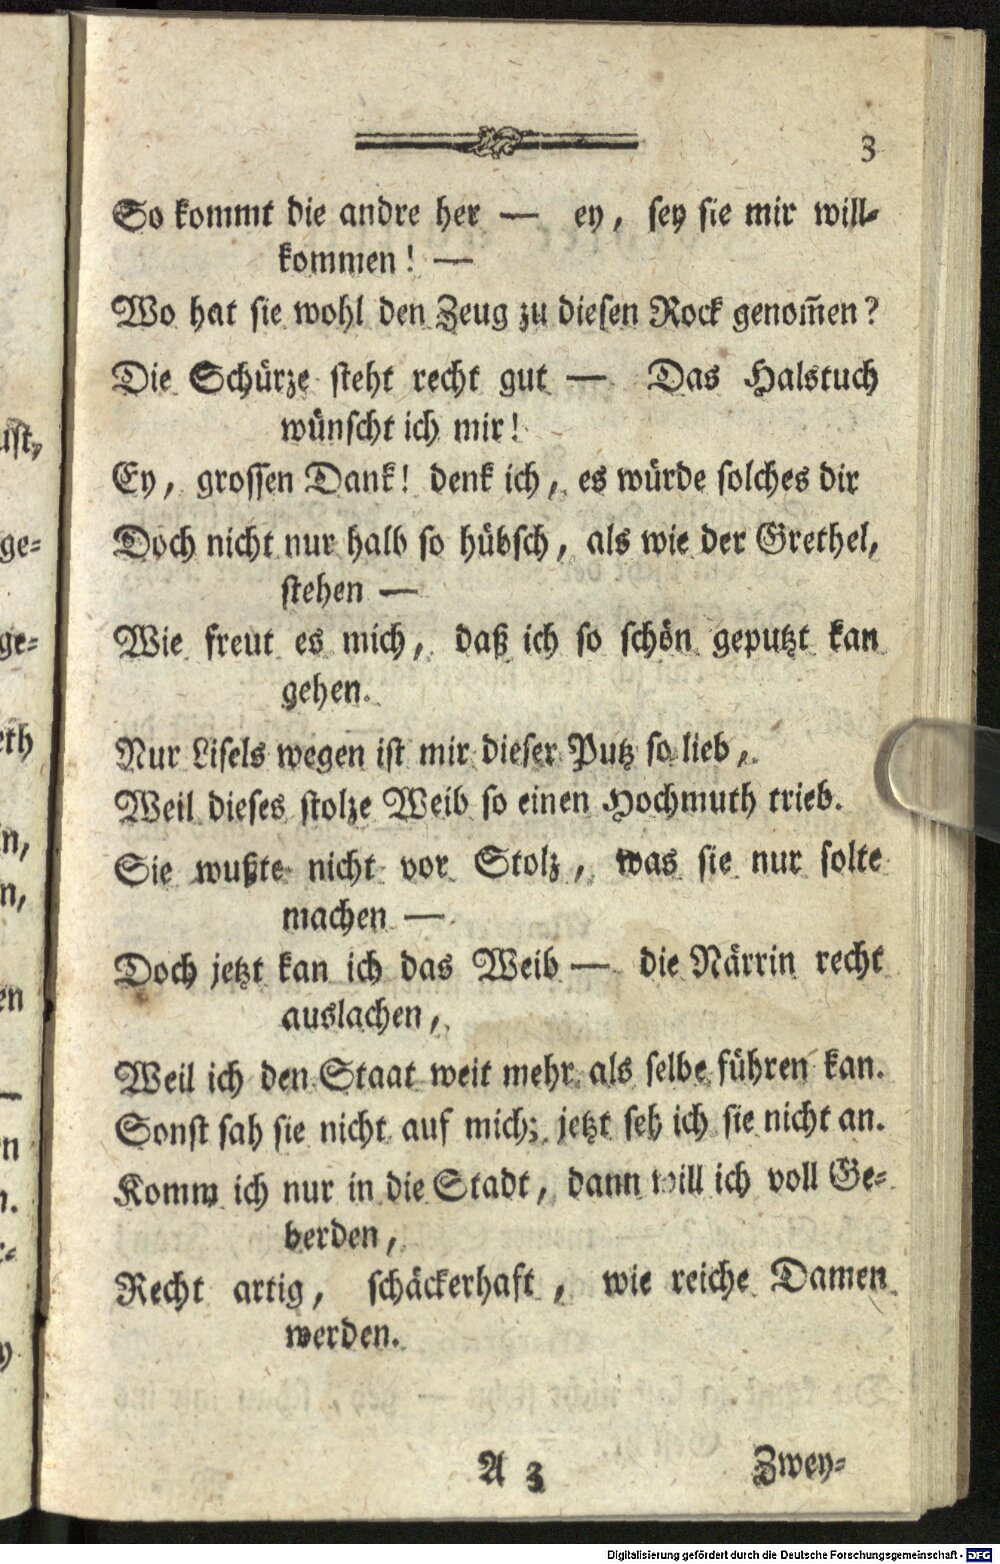 3
So kommt die andre her — ey, sey sie mir will-
kommen! —
Wo hat sie wohl den Zeug zu diesen Rock genom̅en?
Die Schürze steht recht gut — Das Halstuch
wünscht ich mir!
Ey, grossen Dank! denk ich, es würde solches dir
Doch nicht nur halb so hübsch, als wie der Grethel,
stehen —
Wie freut es mich, daß ich so schön geputzt kan
gehen.
Nur Lisels wegen ist mir dieser Putz so lieb,
Weil dieses stolze Weib so einen Hochmuth trieb.
Sie wußte nicht vor Stolz, was sie nur solte
machen —
Doch jetzt kan ich das Weib — die Närrin recht
auslachen,
Weil ich den Staat weit mehr als selbe führen kan.
Sonst sah sie nicht auf mich; jetzt seh ich sie nicht an.
Komm ich nur in die Stadt, dann will ich voll Ge-
berden,
Recht artig, schäckerhaft, wie reiche Damen
werden.
A 3
Zwey-
Digitalisierung gefördert durch die Deutsche Forschungsgemeinschaft - DFG